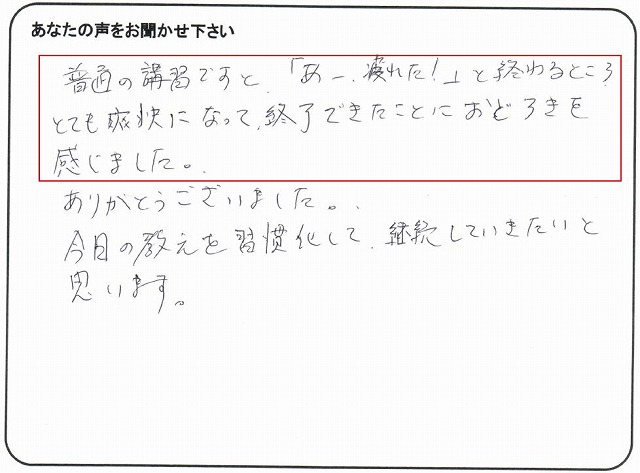 あなたの声をお聞かせ下さい
普通の講習ですと、「あー、疲れた!」と終わるところ
とても爽快になって、終了できたことにおどろきを
感じました。
ありがとうございました。
今日の教えを習慣化して、継続していきたいと
思います。